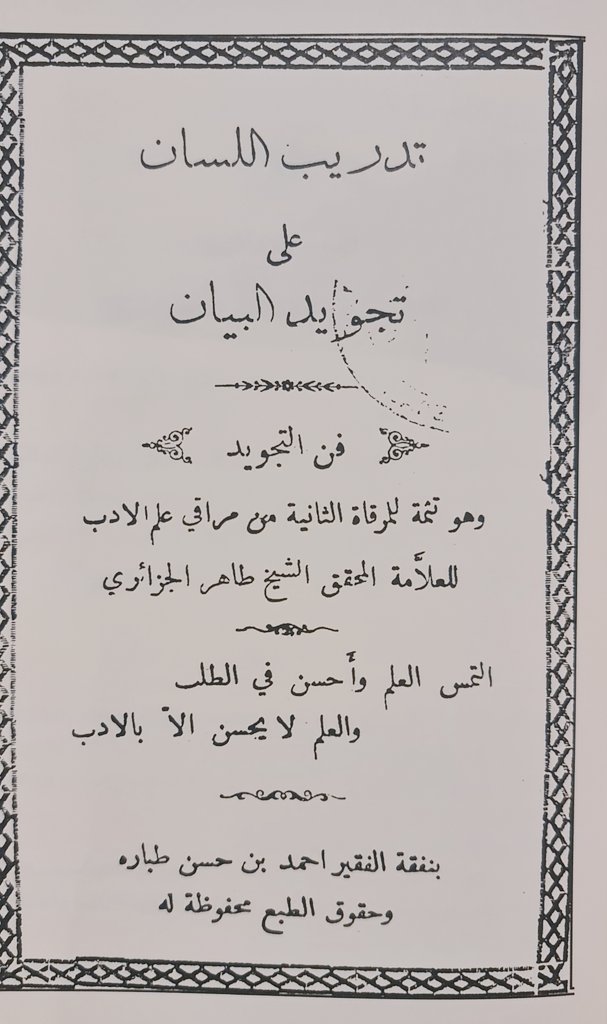 تدريب اللسان
على
تجويد البيان
فن التجويد
وهو تتمة للمرقاة الثانية من مراقي علم الادب
للعلاَّمة المحقق الشيخ طاهر الجزائري
التمس العلم وأَحسن في الطلب
والعلم لا يحسن الاّ بالادب
بنفقة الفقير احمد بن حسن طباره
وحقوق الطبع محفوظة له